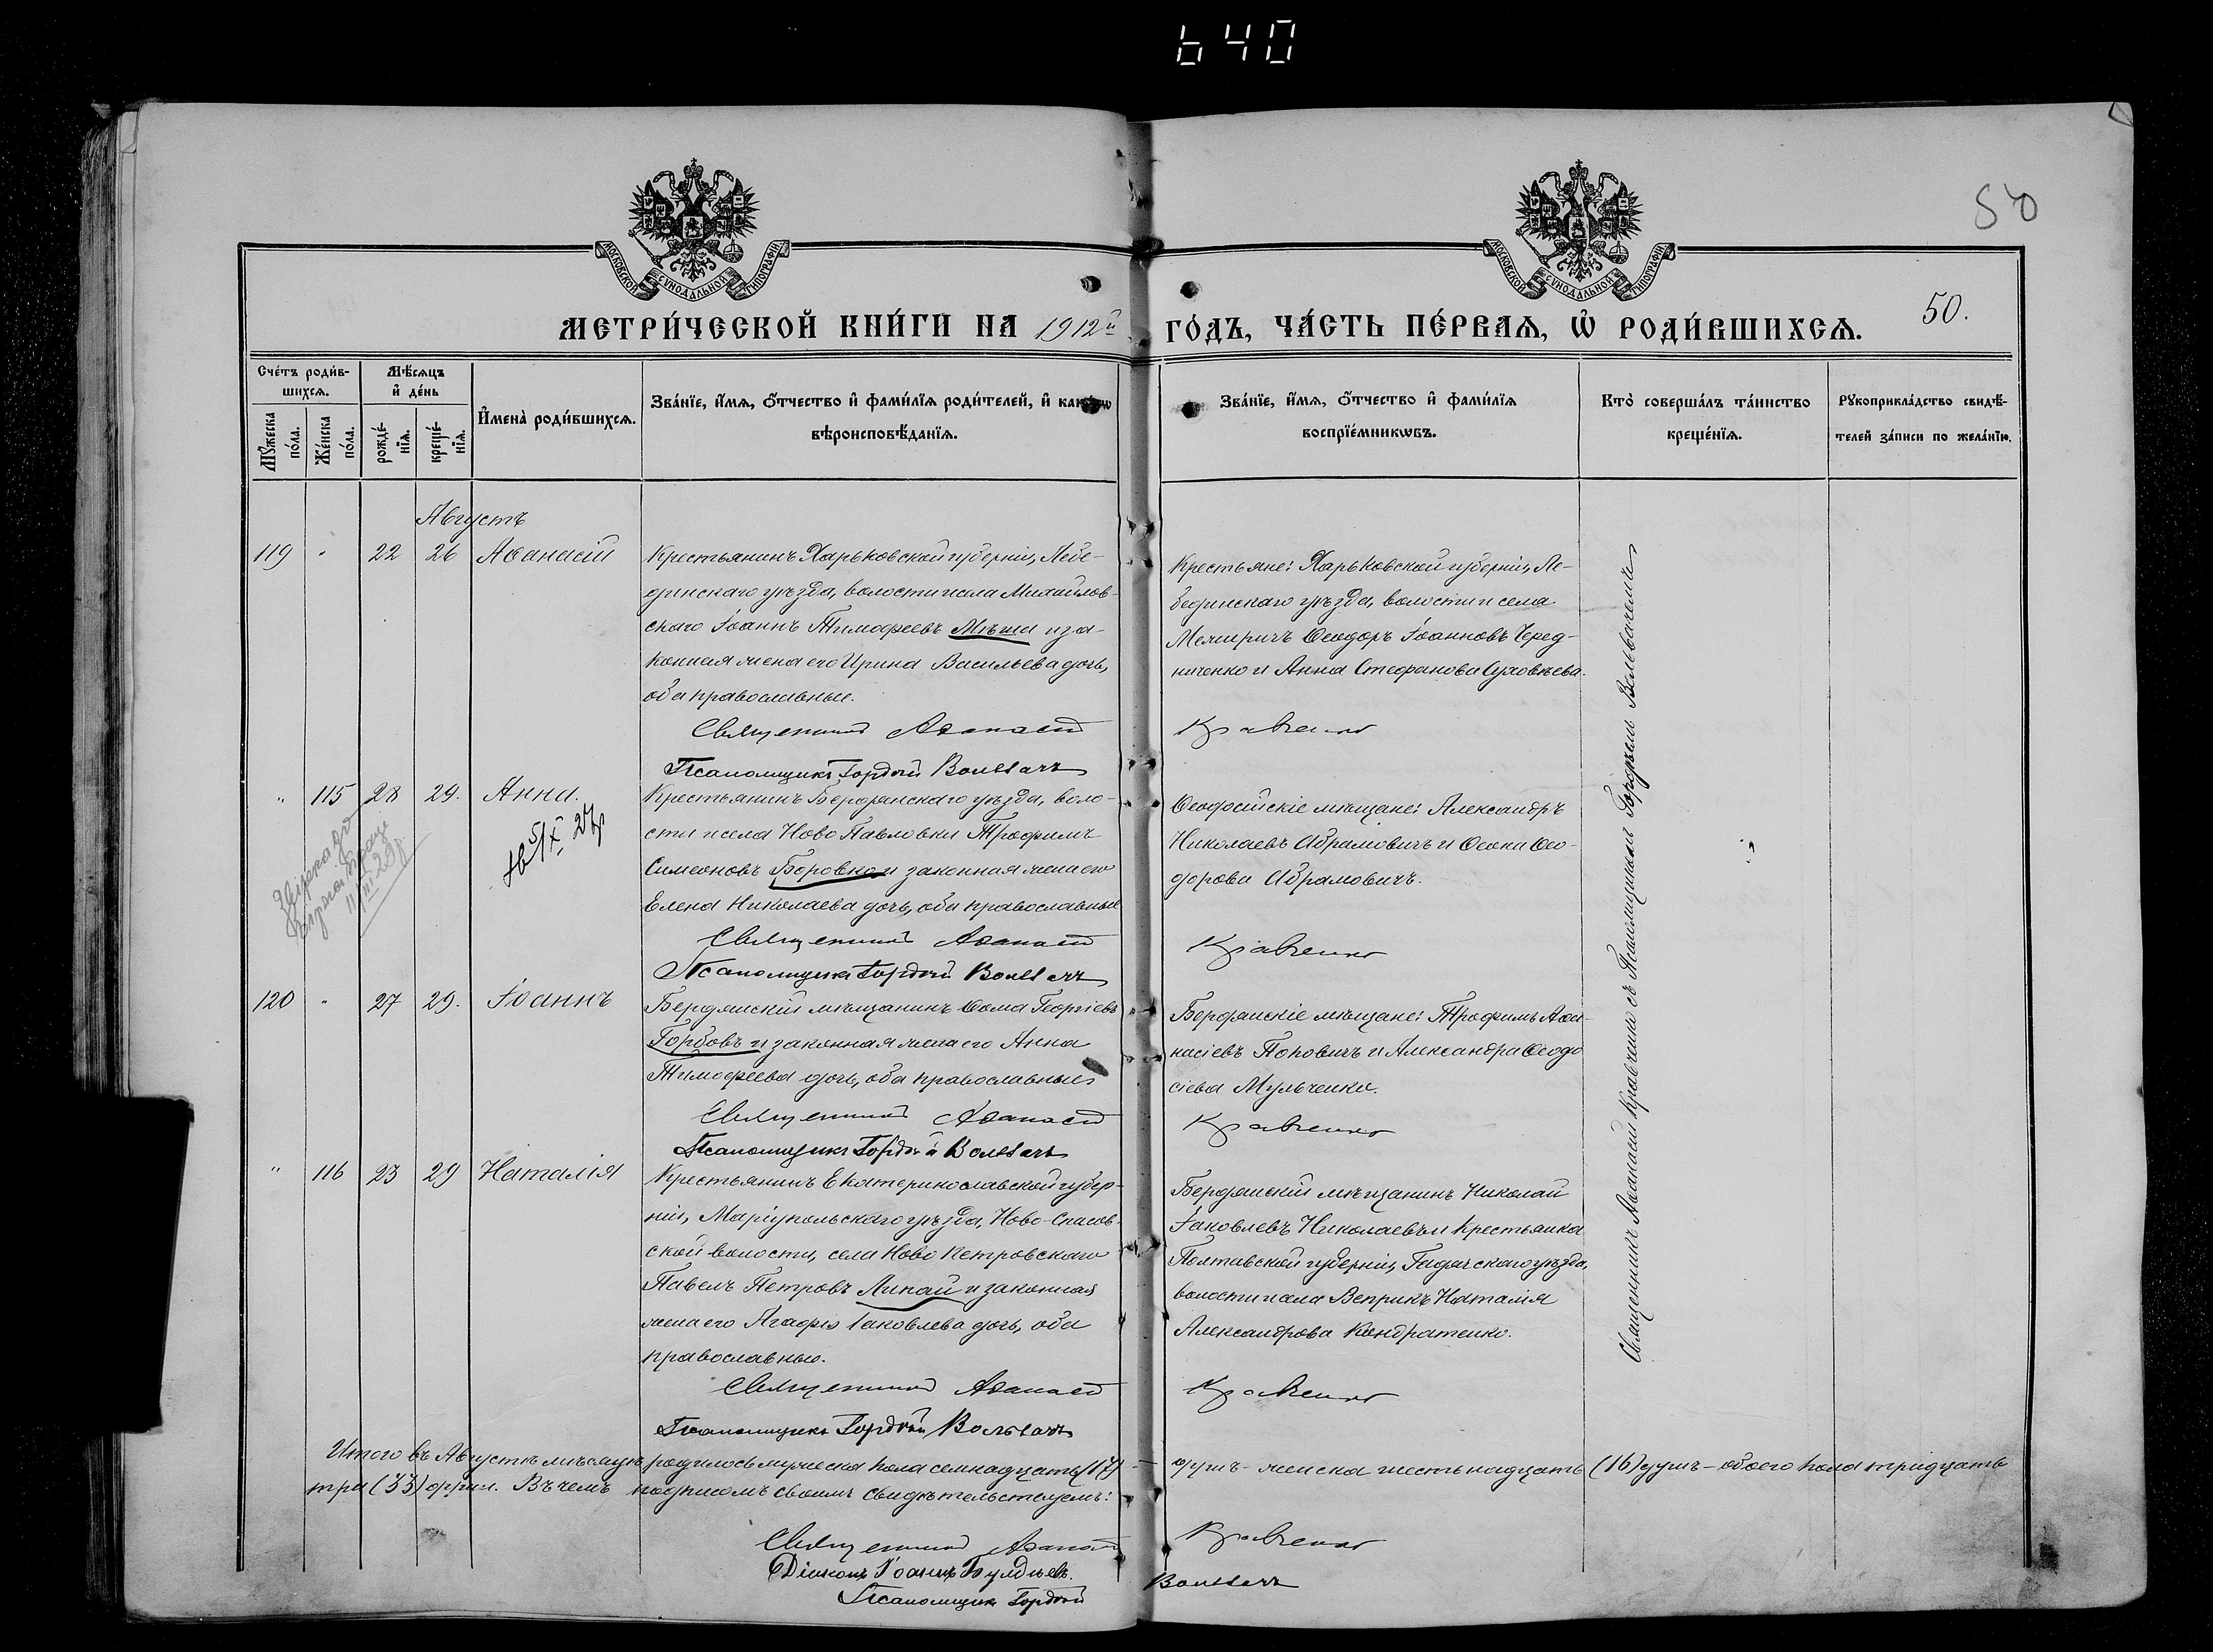 640
50
МОСКОВСКОЙ СѴНОДАЛЬНОЙ ТИПОГРАФІИ
МОСКОВСКОЙ СѴНОДАЛЬНОЙ ТИПОГРАФІИ
МЕТРИ́ЧЕСКОЙ КНИ́ГИ НА 1912й ГО́ДЪ, ЧА́СТЬ ПЕ́РВАѦ, Ѡ РОДИ́ВШИХСѦ. 50.
Сче́тъ роди́в-
шихсѧ.
Мꙋжеска по́ла.
Же́нска по́ла.
Мѣ́сѧцъ
и҆ де́нь
рожде́-
нїѧ.
креще́-
нїѧ.
И҆мена̀ роди́вшихсѧ.
Зва́нїе, и҆́мѧ, ѻ҆́тчество и҆ фами́лїѧ роди́телей, и҆ како́гѡ
вѣроисповѣ́данїѧ.
Зва́нїе, и҆́мѧ, ѻ҆́тчество и҆ фами́лїѧ
воспрїе́мникѡвъ.
Кто̀ соверша́лъ та́инство
креще́нїѧ.
Рꙋкоприкла́дство свидѣ́-
телей за́писи по жела́нїю.
Августъ
119 " 22 26 Аѳанасій
Крестьянинъ Харьковской губерніи, Лебе-
динскаго уѣзда, волости и села Михайлов-
скаго Іоаннъ Тимофеевъ Мѣша и за-
конная жена его Ирина Васильева дочь,
оба православные.
Священникъ Аѳанасій Кравченко
Псаломщикъ Гордѣй Вольвачъ
Крестьяне: Харьковской губерніи, Ле-
бединскаго уѣзда, волости и села
Межиричъ Ѳеодоръ Іоанновъ Черед-
ниченко и Анна Стефанова Суховѣева.
" 115 28 29. Анна.
Крестьянинъ Бердянскаго уѣзда, воло-
сти и села Ново Павловки Трофимъ
Симеоновъ Боровко и законная жена его
Елена Николаева дочь, оба православные
Священникъ Аѳанасій Кравченко
Псаломщикъ Гордѣй Вольвачъ
Ѳеодосійскіе мѣщане: Александръ
Николаевъ Абрамовичъ и Ѳеони Ѳео-
дорова Абрамовичъ.
120 " 27 29. Іоаннъ
Бердянскій мѣщанинъ Ѳома Георгіевъ
Горбовъ и законная жена его Анна
Тимофеева дочь, оба православные
Священникъ Аѳанасій Кравченко
Псаломщикъ Гордѣй Вольвачъ
Бердянскіе мѣщане: Трофимъ Аѳа-
насіевъ Поповичъ и Александра Ѳеодо
сіева Мульченко.
" 116 23 29 Наталія
Крестьянинъ Екатеринославской губер-
ніи, Маріупольскаго уѣзда, Ново-Спасов-
ской волости, села Ново Петровскаго
Павелъ Петровъ Липай и законная
жена его Агафія Іаковлева дочь, оба
православные.
Священникъ Аѳанасій Кравченко
Псаломщикъ Гордѣй Вольвачъ
Бердянскій мѣщанинъ Николай
Іаковлевъ Николаевъ и крестьянка
Полтавской губерніи, Гадячскаго уѣзда,
волости и села Веприкъ Наталія
Александрова Кондратенко.
Священникъ Аѳанасій Кравченко съ Псаломщикомъ Гордѣемъ Вольвачемъ
Итого въ Августѣ мѣсяцѣ родилось мужеска пола семнадцать (17) — душъ - женска шестьнадцать (16) душъ - обоего пола тридцать
три (33) души. Въ чемъ подписомъ своимъ свидѣтельствуемъ:
Священникъ Аѳанасій Кравченко
Діаконъ Іоаннъ
Псаломщикъ Гордѣй Вольвачъ